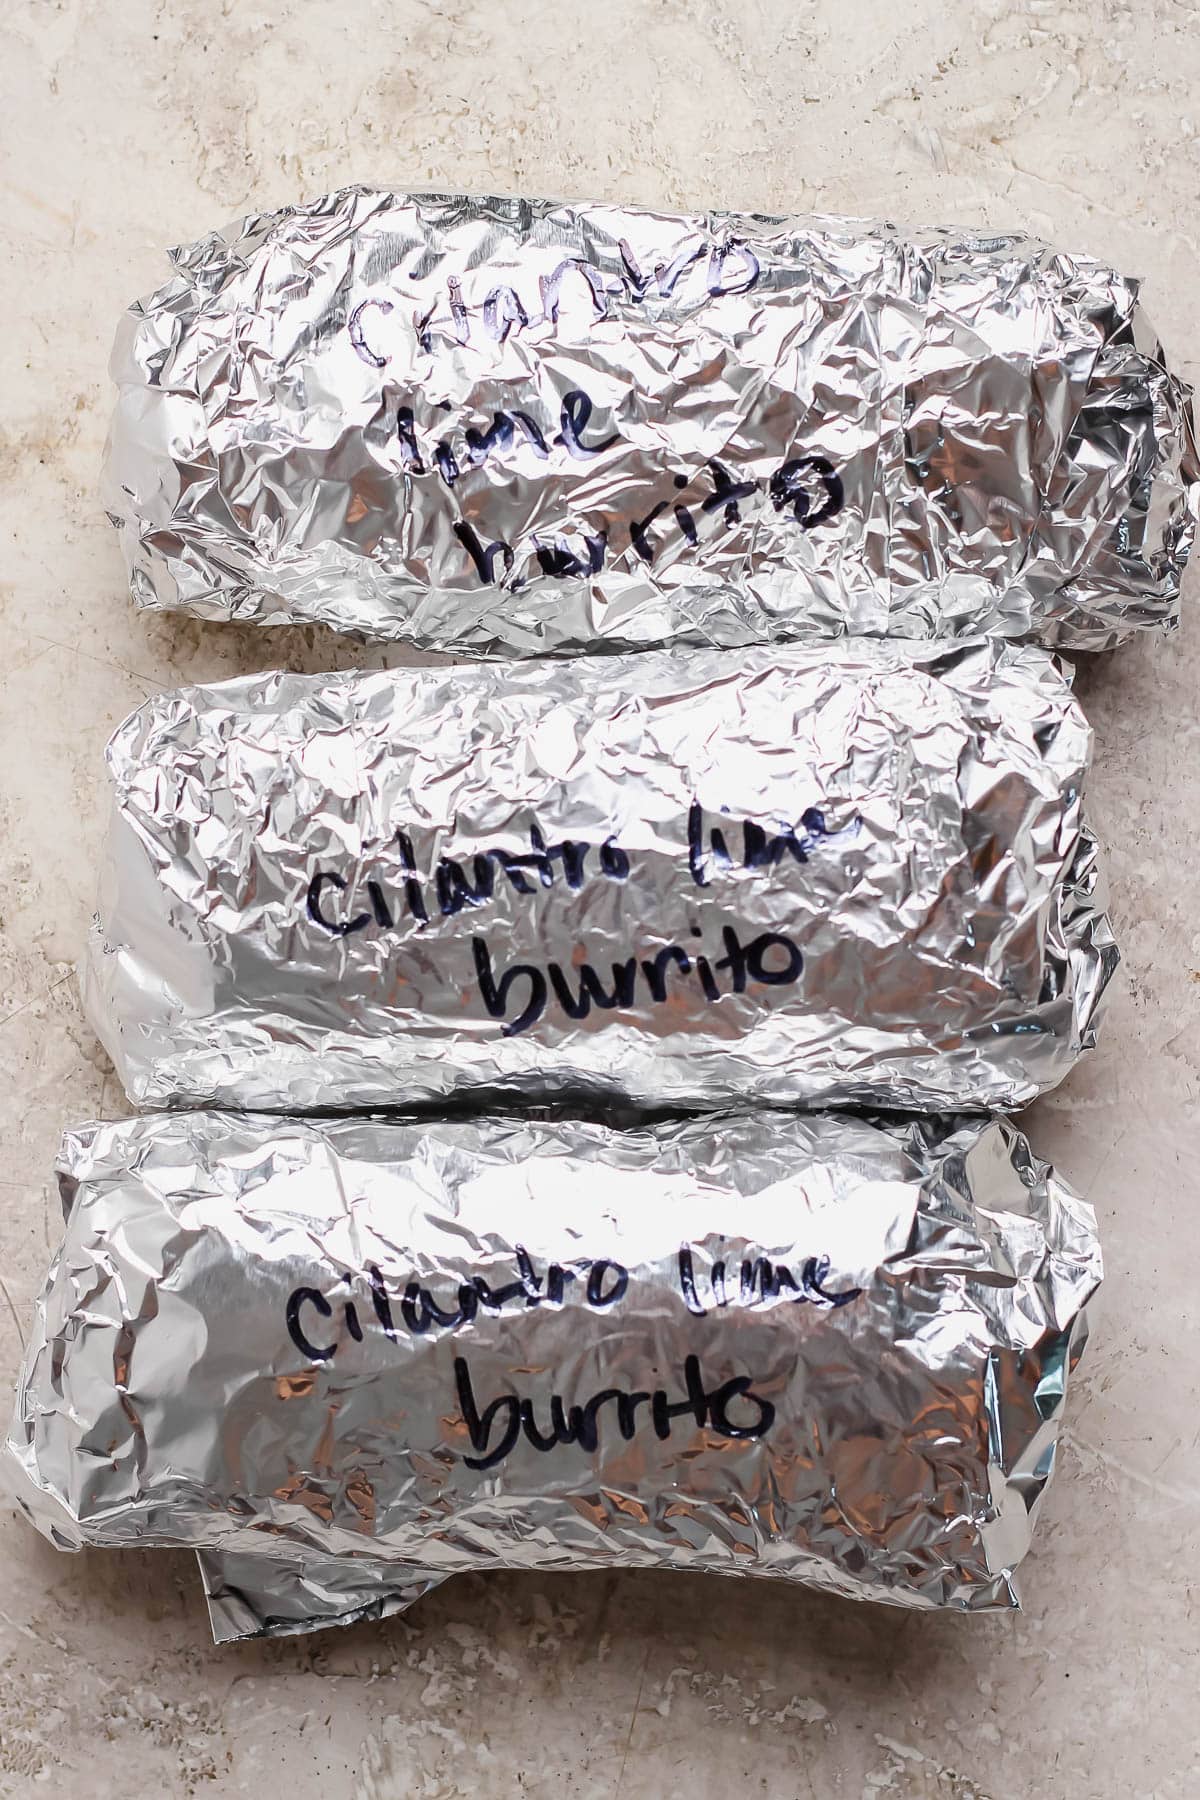 cilantro
lime
burrito
cilantro lime
burrito
cilantro lime
burrito